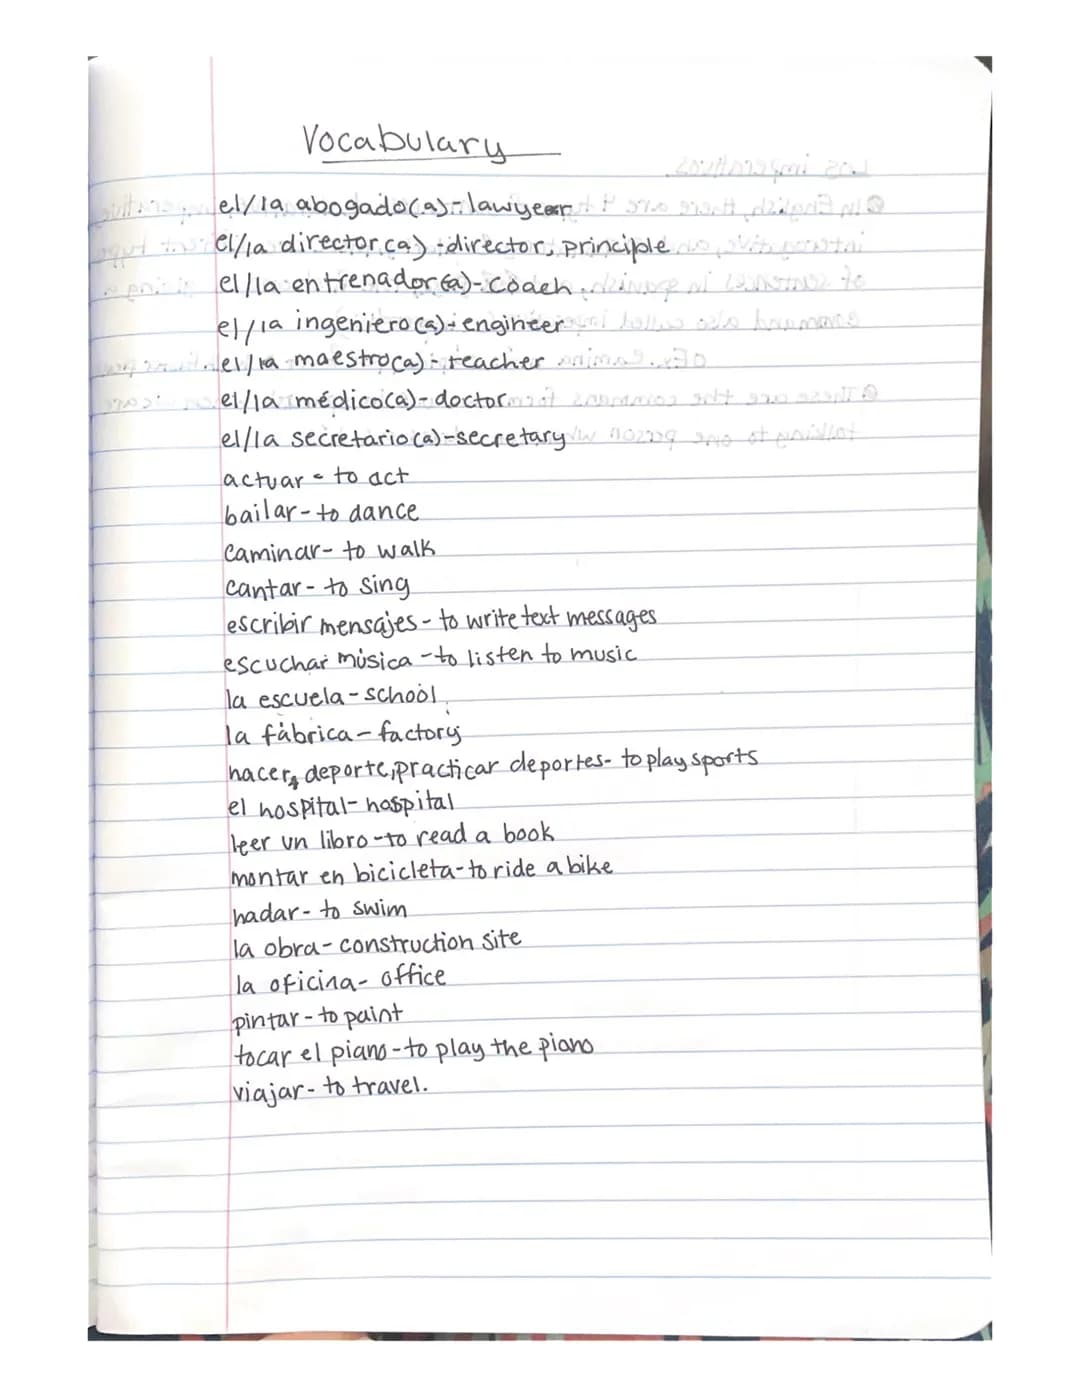 Vocabulary
el/la abogado(a)-lawyer
el/la director(a)-director, principle
el/la entrenador(a)-coach
el/la ingeniero(a)-engineer
el/la maestro(a)-teacher
el/la médico(a)-doctor
el/la secretario(a)-secretary
actuar - to act
bailar-to dance
caminar- to walk
cantar- to sing
escribir mensajes-to write text messages
escuchar música-to listen to music
la escuela-school
la fábrica-factory
hacer deporte, practicar deportes-to play sports
el hospital-hospital
leer un libro-to read a book
montar en bicicleta-to ride a bike
nadar- to swim
la obra-construction site
la oficina- office
pintar-to paint
tocar el piano-to play the piano
viajar- to travel.